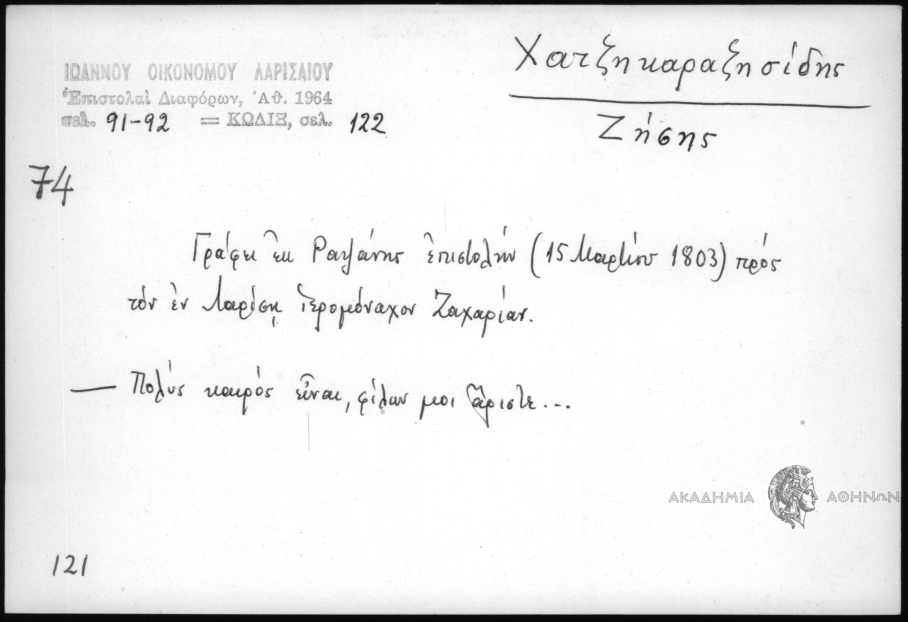 ΙΩΑΝΝΟΥ ΟΙΚΟΝΟΜΟΥ ΛΑΡΙΣΑΙΟΥ
Ἐπιστολαὶ Διαφόρων, Ἀθ. 1964
σελ. 91-92 = ΚΩΔΙΞ, σελ. 122
Χατζηκαραζησίδης
Ζήσης
74
Γράφει ἐκ Ραψάνης ἐπιστολήν (15 Μαρτίου 1803) πρός
τόν ἐν Λαρίσῃ ἱερομόναχον Ζαχαρίαν.
— Πολύς καιρός εἶναι, φίλων μοι ἄριστε...
ΑΚΑΔΗΜΙΑ ΑΘΗΝΩΝ
121